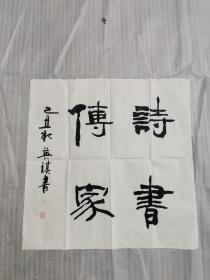 詩書
傳家
己丑秋
書